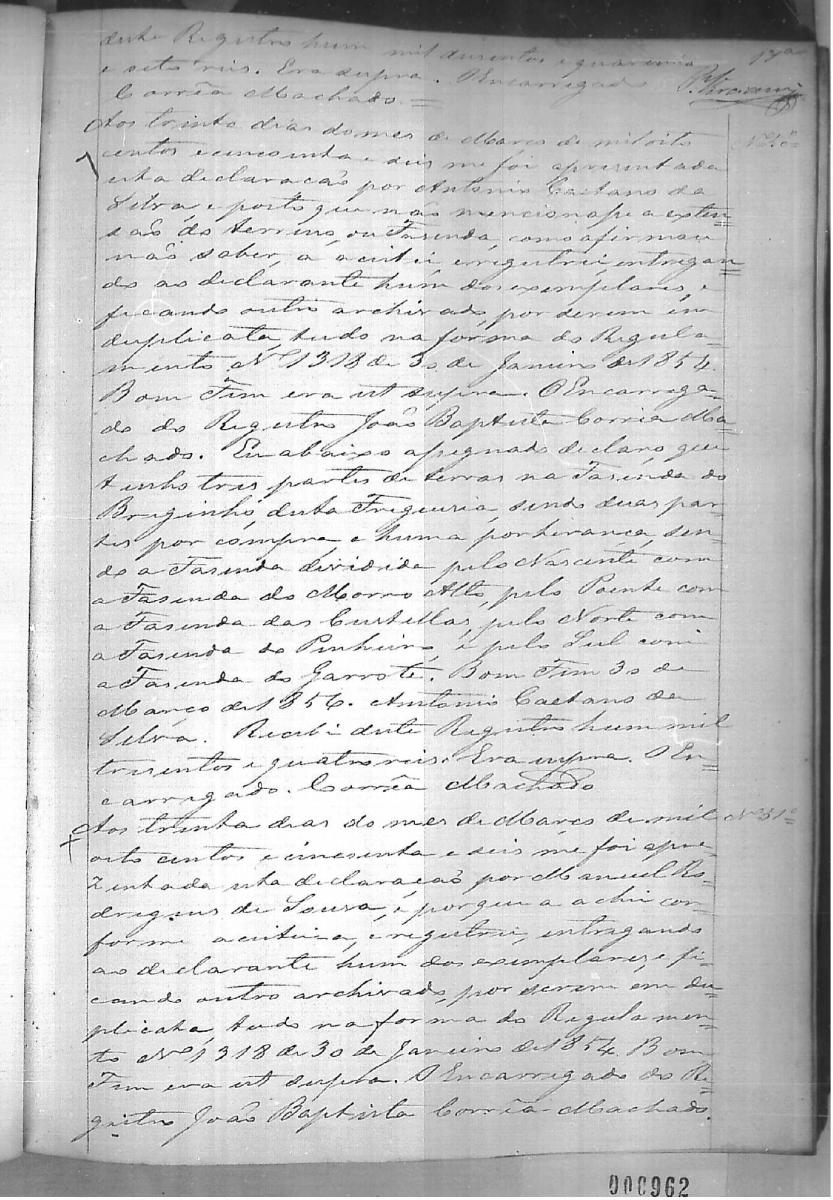 deste Registro hum mil dusentos e quarenta
e sete reis. Era supra. O Encarregado
Corrêa Machado.=
17
Aos trinta dias do mes de Março de mil oito
centos e cincoenta e seis me foi apresentada
esta declaração por Antonio Caetano da
Silva e posto que não mencionasse a exten=
são do terreno, ou Fasenda, como afirmou
não saber, a aceitei e registrei entregan=
do ao declarante hum dos exemplares, e
ficando outro archivado, por serem em
duplicata, tudo na forma do Regula=
mento Nº 1318 de 30 de Janeiro de 1854.
Bom Fim era ut supra. O Encarrega=
do do Registro João Baptista Corrêa Ma=
chado. Eu abaixo assignado declaro, que
tenho tres partes de terras na Fasenda do
Breginho, desta Freguesia, sendo duas par=
tes por compra, e huma por herança, sen=
do a Fasenda dividida pelo Nascente com
a Fasenda do Morro Alto, pelo Poente com
a Fasenda das Custellas, pelo Norte com
a Fasenda do Pinheiro, e pelo Sul com
a Fasenda do Garrote. Bom Fim 30 de
Março de 1856. Antonio Caetano da
Silva. Recebi deste Registro hum mil
tresentos e quatro reis. Era supra. O En=
carregado. Corrêa Machado
Aos trinta dias do mes de Março de mil
Nº 31º
oito centos e cincoenta e seis me foi apre=
zentada esta declaração por Manuel Ro=
drigues de Sousa, e porque a achei con=
forme a aceitei, e registrei, entregando
ao declarante hum dos exemplares, e fi=
cando outro archivado, por serem em du=
plicata, tudo na forma do Regulamen=
to Nº 1318 de 30 de Janeiro de 1854. Bom
Fim era ut supra. O Encarregado do Re=
gistro João Baptista Corrêa Machado.
000962